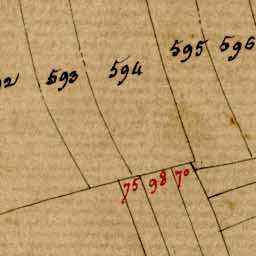 593 594 595 596
75 98 70